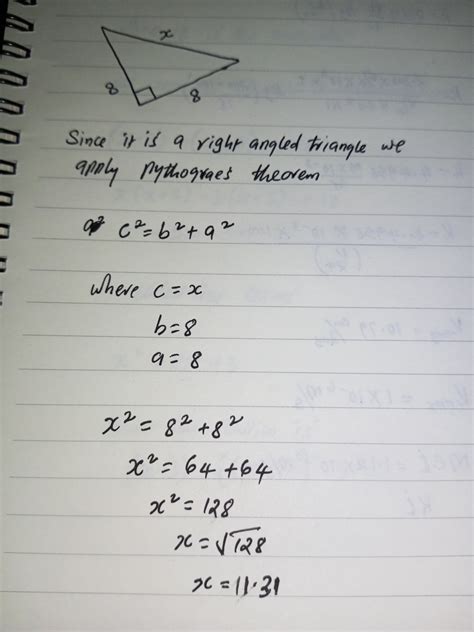 x
8
8
Since it is a right angled triangle we
apply pythograes theorem
c² = b² + a²
where c = x
b = 8
a = 8
x² = 8² + 8²
x² = 64 + 64
x² = 128
x = √128
x = 11.31